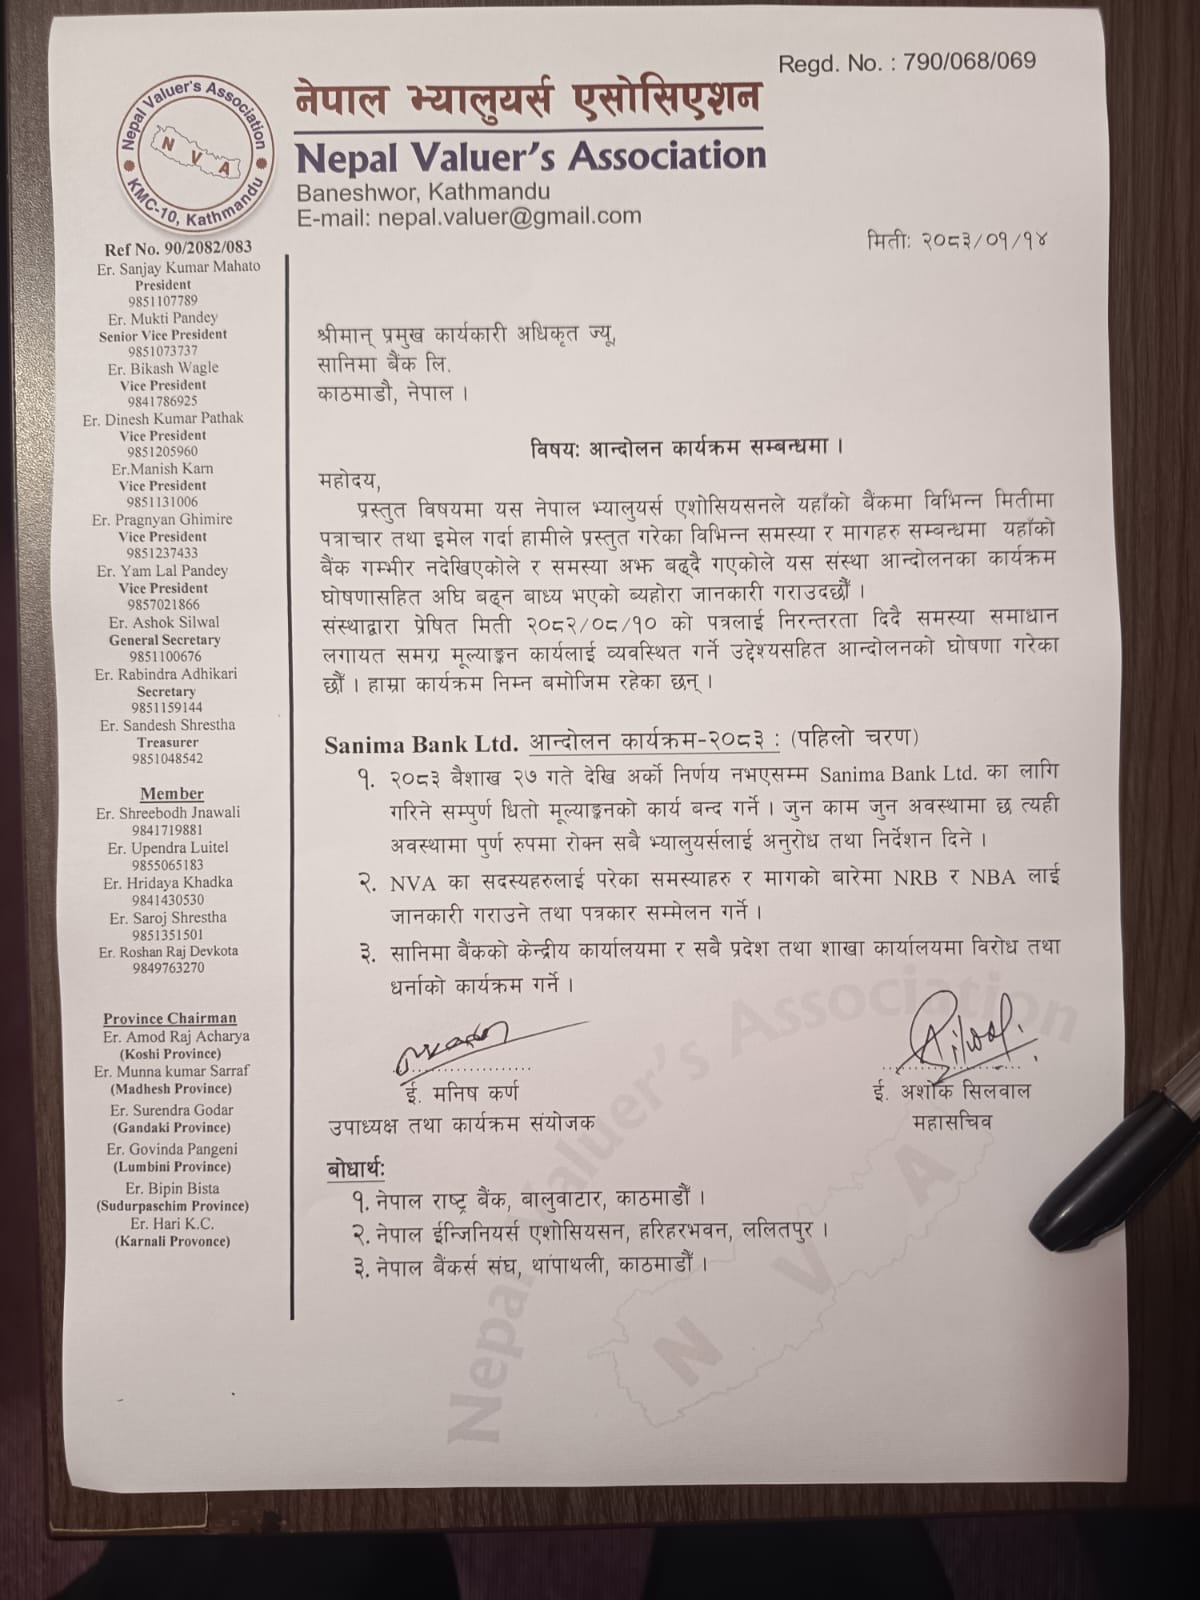 Regd. No. : 790/068/069
Nepal Valuer's Association
KMC-10, Kathmandu
N V A
नेपाल भ्यालुयर्स एसोसिएशन
Nepal Valuer's Association
Baneshwor, Kathmandu
E-mail: nepal.valuer@gmail.com
मितीः २०८३/०१/१४
Ref No. 90/2082/083
Er. Sanjay Kumar Mahato
President
9851107789
Er. Mukti Pandey
Senior Vice President
9851073737
Er. Bikash Wagle
Vice President
9841786925
Er. Dinesh Kumar Pathak
Vice President
9851205960
Er.Manish Karn
Vice President
9851131006
Er. Pragnyan Ghimire
Vice President
9851237433
Er. Yam Lal Pandey
Vice President
9857021866
Er. Ashok Silwal
General Secretary
9851100676
Er. Rabindra Adhikari
Secretary
9851159144
Er. Sandesh Shrestha
Treasurer
9851048542
Member
Er. Shreebodh Jnawali
9841719881
Er. Upendra Luitel
9855065183
Er. Hridaya Khadka
9841430530
Er. Saroj Shrestha
9851351501
Er. Roshan Raj Devkota
9849763270
Province Chairman
Er. Amod Raj Acharya
(Koshi Province)
Er. Munna kumar Sarraf
(Madhesh Province)
Er. Surendra Godar
(Gandaki Province)
Er. Govinda Pangeni
(Lumbini Province)
Er. Bipin Bista
(Sudurpaschim Province)
Er. Hari K.C.
(Karnali Provonce)
श्रीमान् प्रमुख कार्यकारी अधिकृत ज्यू,
सानिमा बैंक लि.
काठमाडौ, नेपाल ।
विषयः आन्दोलन कार्यक्रम सम्बन्धमा ।
महोदय,
प्रस्तुत विषयमा यस नेपाल भ्यालुयर्स एशोसियसनले यहाँको बैंकमा विभिन्न मितीमा
पत्राचार तथा इमेल गर्दा हामीले प्रस्तुत गरेका विभिन्न समस्या र मागहरु सम्बन्धमा यहाँको
बैंक गम्भीर नदेखिएकोले र समस्या अझ बढ्दै गएकोले यस संस्था आन्दोलनका कार्यक्रम
घोषणासहित अघि बढ्न बाध्य भएको ब्यहोरा जानकारी गराउदछौँ ।
संस्थाद्वारा प्रेषित मिती २०८२/०८/१० को पत्रलाई निरन्तरता दिदै समस्या समाधान
लगायत समग्र मूल्याङ्कन कार्यलाई व्यवस्थित गर्ने उद्देश्यसहित आन्दोलनको घोषणा गरेका
छौँ । हाम्रा कार्यक्रम निम्न बमोजिम रहेका छन् ।
Sanima Bank Ltd. आन्दोलन कार्यक्रम-२०८३ : (पहिलो चरण)
१. २०८३ बैशाख २७ गते देखि अर्को निर्णय नभएसम्म Sanima Bank Ltd. का लागि
गरिने सम्पुर्ण धितो मूल्याङ्कनको कार्य बन्द गर्ने । जुन काम जुन अवस्थामा छ त्यही
अवस्थामा पुर्ण रुपमा रोक्न सबै भ्यालुयर्सलाई अनुरोध तथा निर्देशन दिने ।
२. NVA का सदस्यहरुलाई परेका समस्याहरु र मागको बारेमा NRB र NBA लाई
जानकारी गराउने तथा पत्रकार सम्मेलन गर्ने ।
३. सानिमा बैंकको केन्द्रीय कार्यालयमा र सबै प्रदेश तथा शाखा कार्यालयमा विरोध तथा
धर्नाको कार्यक्रम गर्ने ।
ई. मनिष कर्ण
उपाध्यक्ष तथा कार्यक्रम संयोजक
ई. अशोक सिलवाल
महासचिव
बोधार्थः
१. नेपाल राष्ट्र बैंक, बालुवाटार, काठमाडौँ ।
२. नेपाल ईन्जिनियर्स एशोसियसन, हरिहरभवन, ललितपुर ।
३. नेपाल बैंकर्स संघ, थांपाथली, काठमाडौँ ।
Nepal Valuer's Association
N V A